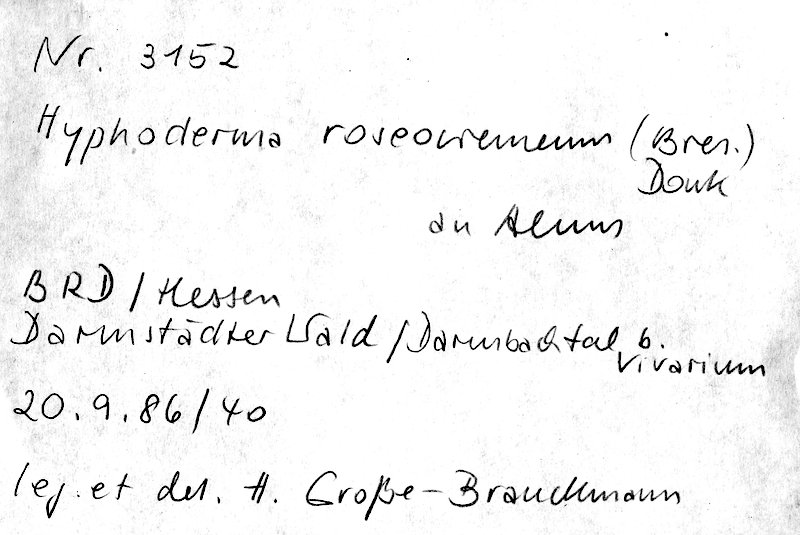 Nr. 3152
Hyphoderma roseocremeum (Bres.)
Donk
an Alnus
BRD / Hessen
Darmstädter Wald / Darmbachtal b.
Vivarium
20.9.86/40
leg. et det. H. Große-Brauckmann